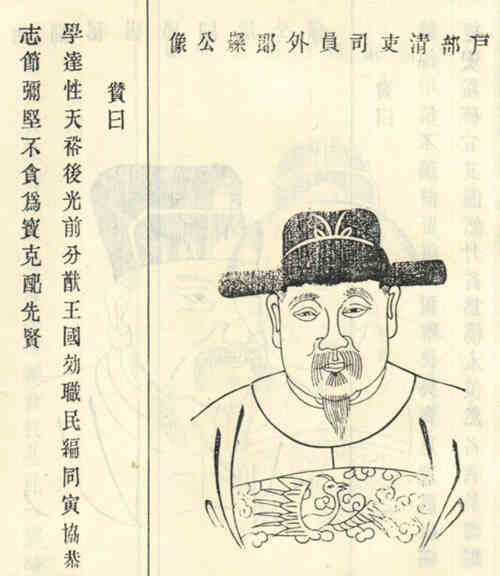 戶部清吏司員外郎公像
贊曰
學達性天裕後光前分猷王國効職民編同寅協恭
志節彌堅不貪爲寶克配先賢